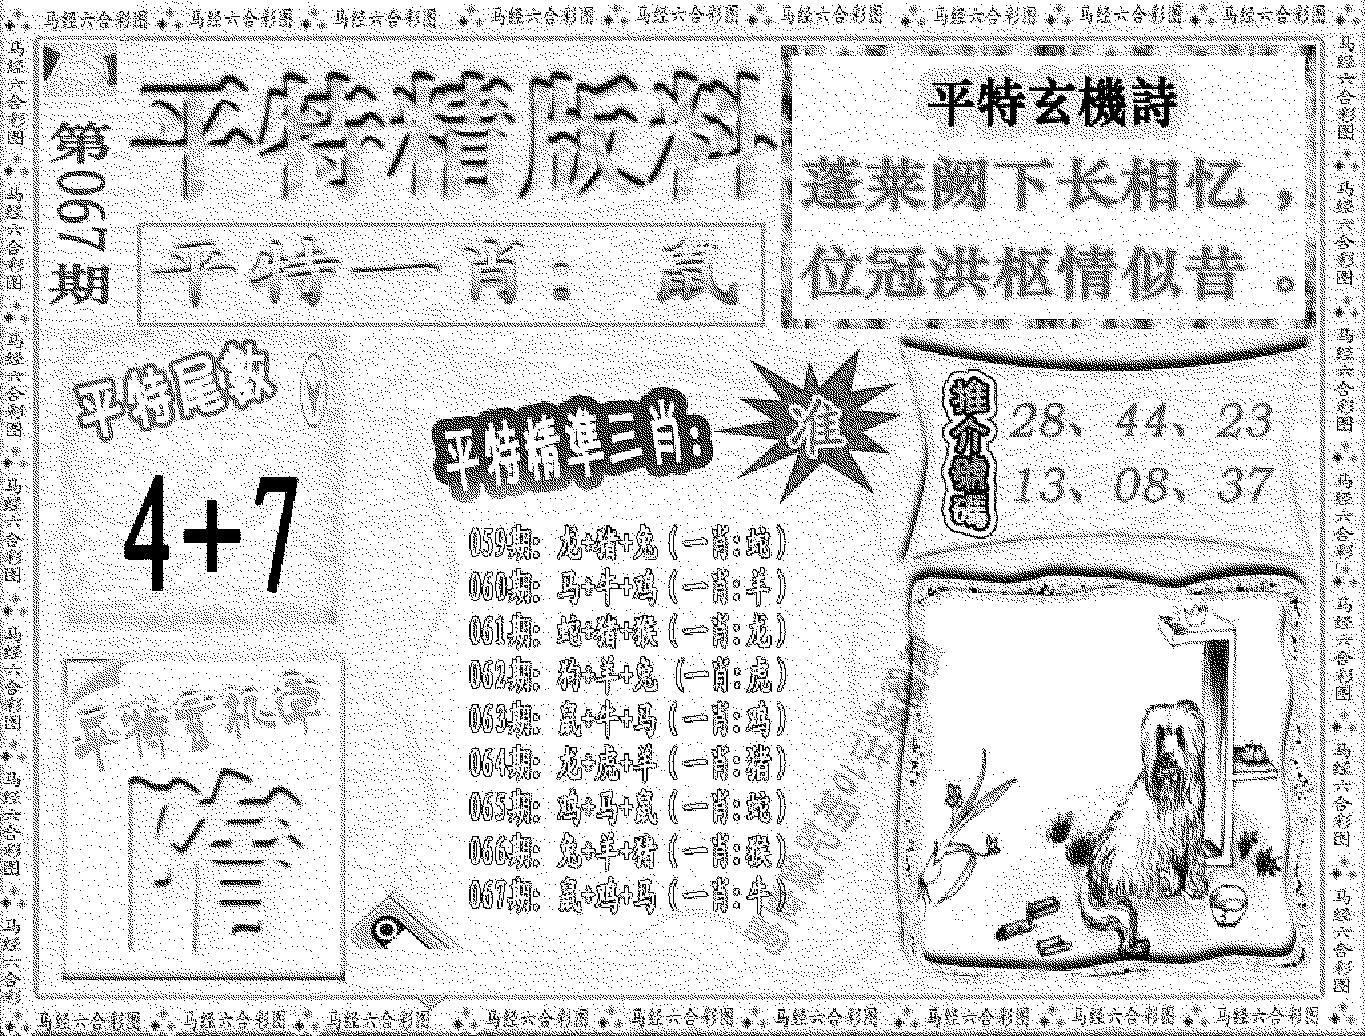 马经六合彩图 马经六合彩图 马经六合彩图 马经六合彩图 马经六合彩图 马经六合彩图 马经六合彩图 马经六合彩图 马经六合彩图
第067期
平特精版料
平特一肖：鼠
平特玄機詩
蓬莱阙下长相忆，
位冠洪枢情似昔。
平特尾数
4+7
平特精準三肖:
准
059期: 龙+猪+兔（一肖:蛇）
060期: 马+牛+鸡（一肖:羊）
061期: 蛇+猪+猴（一肖:龙）
062期: 狗+羊+兔（一肖:虎）
063期: 鼠+牛+马（一肖:鸡）
064期: 龙+虎+羊（一肖:猪）
065期: 鸡+马+鼠（一肖:蛇）
066期: 兔+羊+猪（一肖:猴）
067期: 鼠+鸡+马（一肖:牛）
28、44、23
13、08、37
平特玄机章
马经六合彩图 马经六合彩图 马经六合彩图 马经六合彩图 马经六合彩图 马经六合彩图 马经六合彩图 马经六合彩图 马经六合彩图